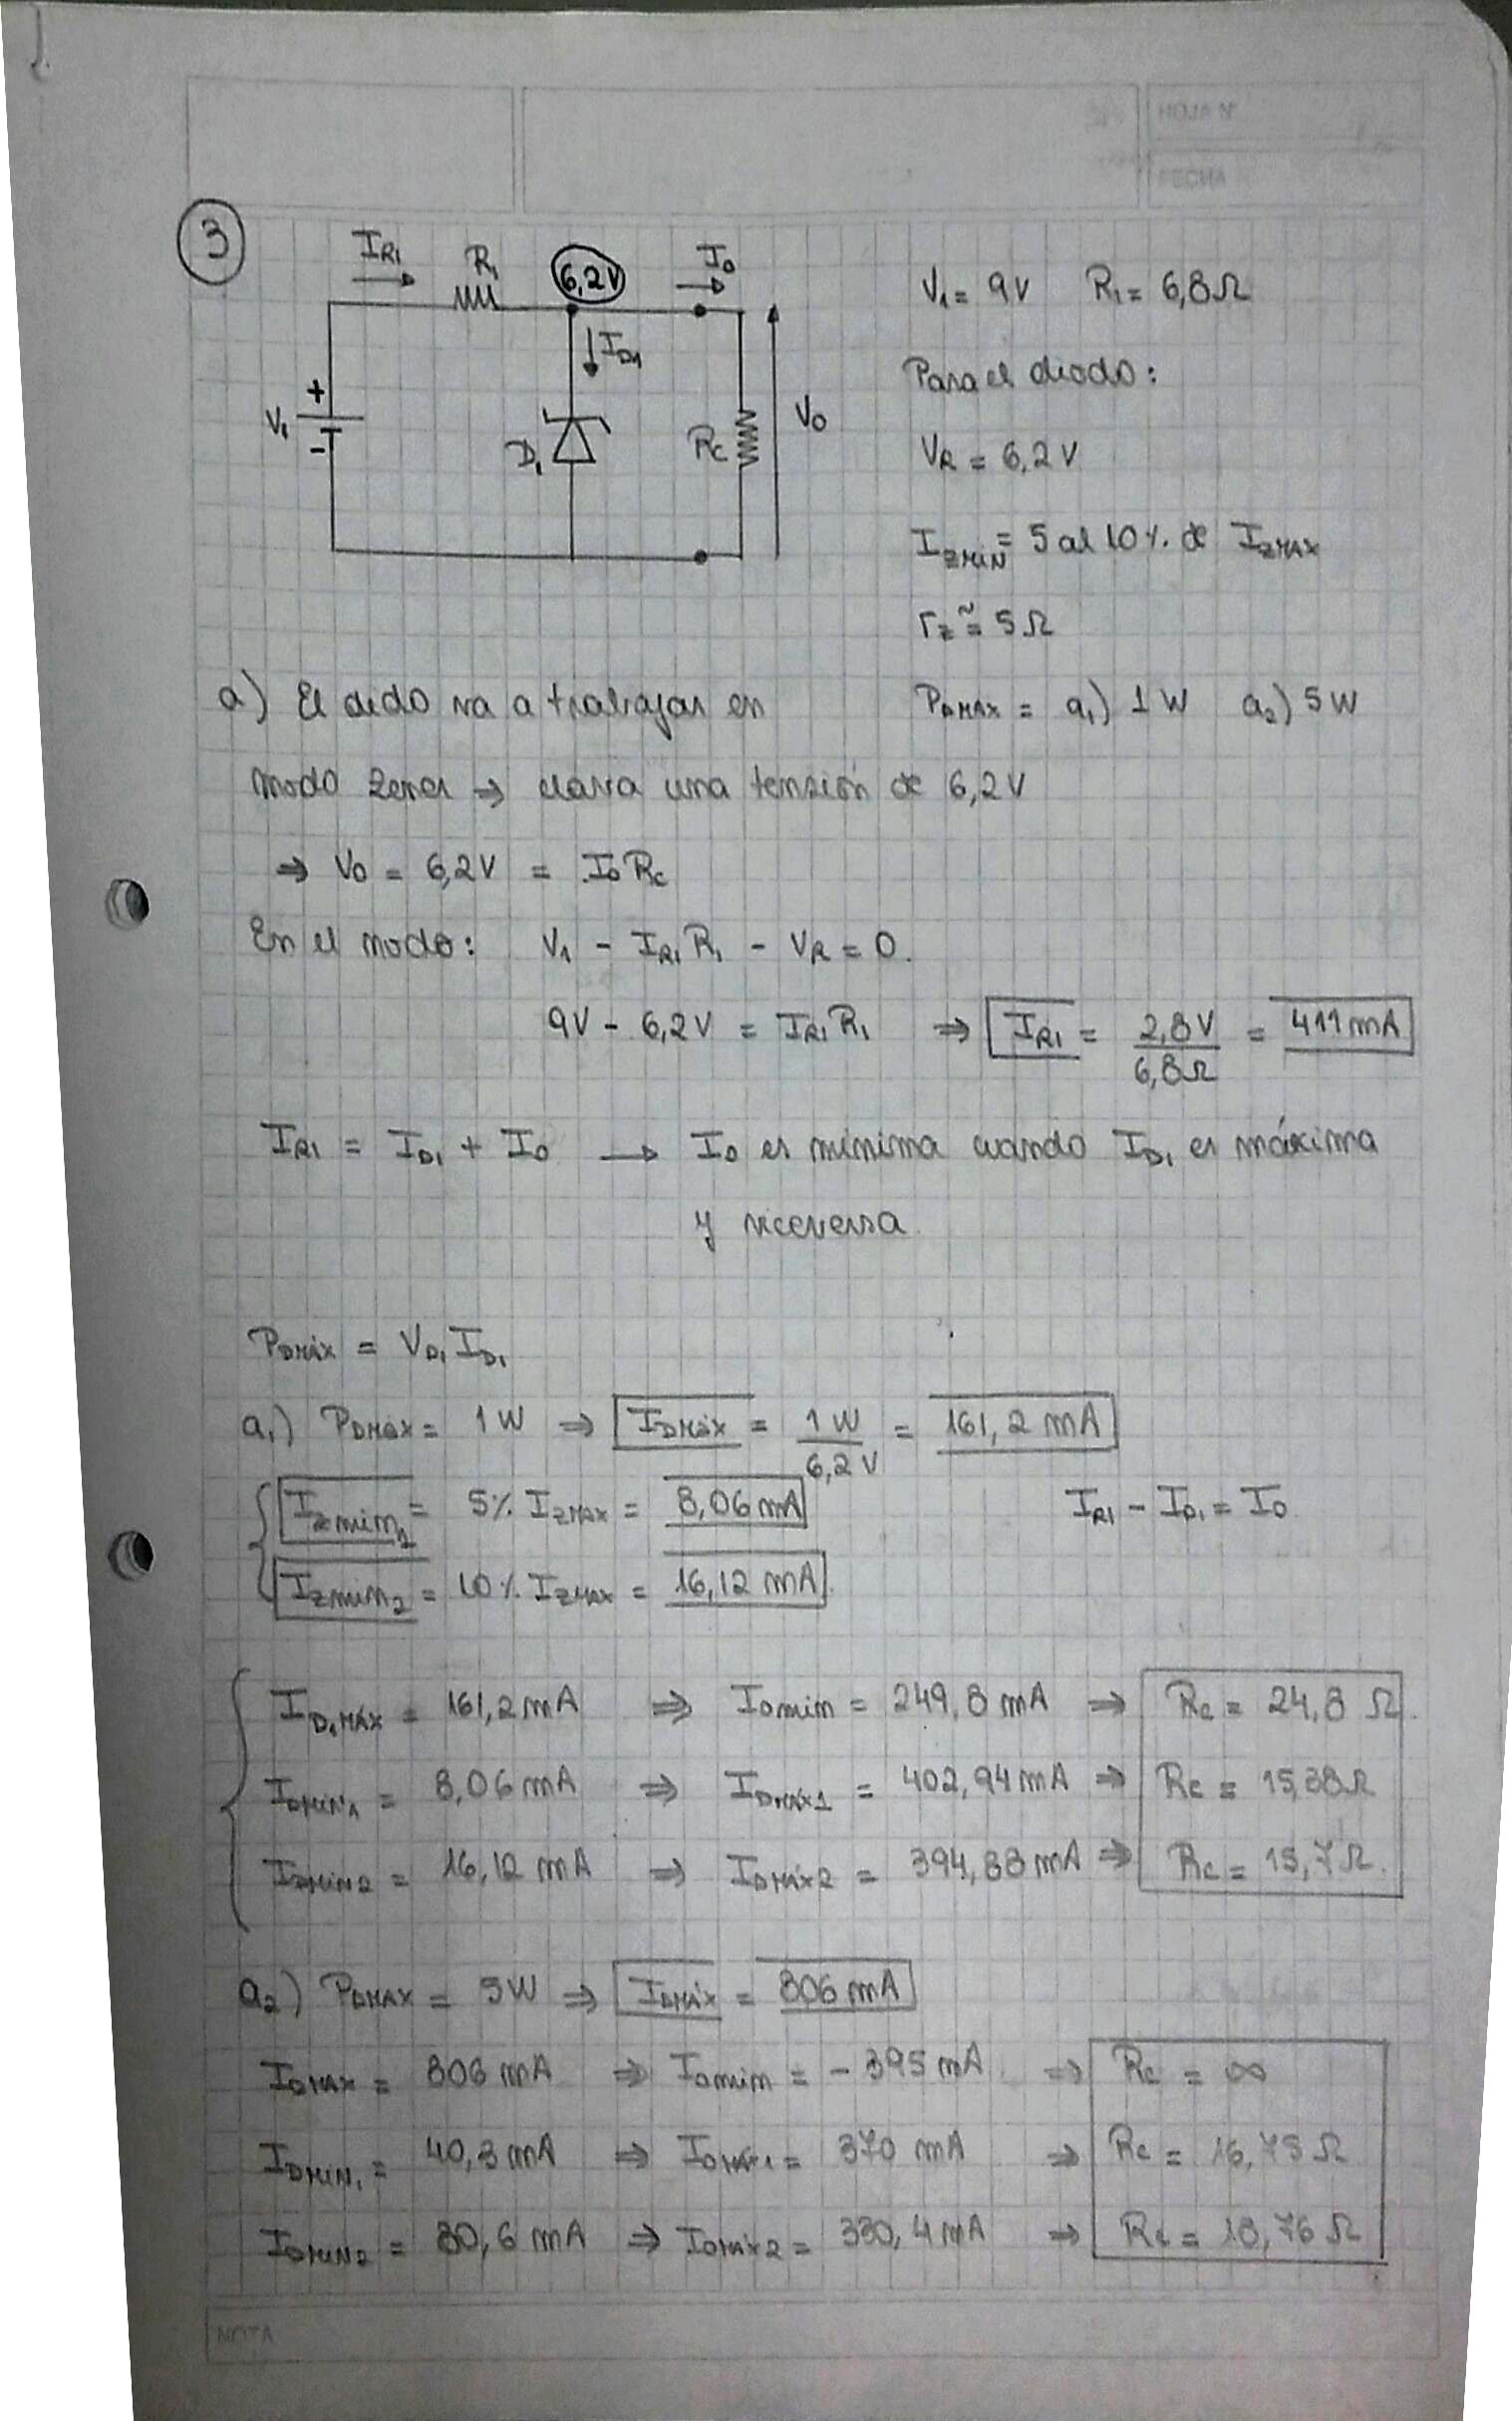 HOJA Nº
FECHA
3
IR1 R1 6,2V I0
V1 = 9V R1 = 6,8Ω
ID1
Para el diodo:
+
V1
-
D1 Rc V0
VR = 6,2V
IZMIN = 5 al 10% de IZMAX
rz ≅ 5Ω
a) El diodo va a trabajar en
PDMAX = a1) 1W a2) 5W
modo Zener ⇒ clava una tensión de 6,2V
⇒ V0 = 6,2V = I0 Rc
En el nodo: V1 - IR1 R1 - VR = 0.
9V - 6,2V = IR1 R1 ⇒ IR1 = 2,8V / 6,8Ω = 411mA
IR1 = ID1 + I0 → I0 es mínima cuando ID1 es máxima
y viceversa.
PDMáx = VD1 ID1
a1) PDMáx = 1W ⇒ IDMáx = 1W / 6,2V = 161,2mA
Izmin1 = 5% IZMAX = 8,06mA
IR1 - ID1 = I0
Izmin2 = 10% IZMAX = 16,12mA
ID1MÁX = 161,2mA ⇒ I0min = 249,8mA ⇒ Rc = 24,8Ω.
IDMIN1 = 8,06mA ⇒ I0MÁX1 = 402,94mA ⇒ Rc = 15,38Ω
IDMIN2 = 16,12mA ⇒ I0MÁX2 = 394,88mA ⇒ Rc = 15,7Ω.
a2) PDMAX = 5W ⇒ IDMÁX = 806mA
IDMAX = 806mA ⇒ I0min = -395mA ⇒ Rc = ∞
IDMIN1 = 40,3mA ⇒ I0MÁX1 = 370mA ⇒ Rc = 16,75Ω
IDMIN2 = 80,6mA ⇒ I0MÁX2 = 330,4mA ⇒ Rc = 18,76Ω
NOTA